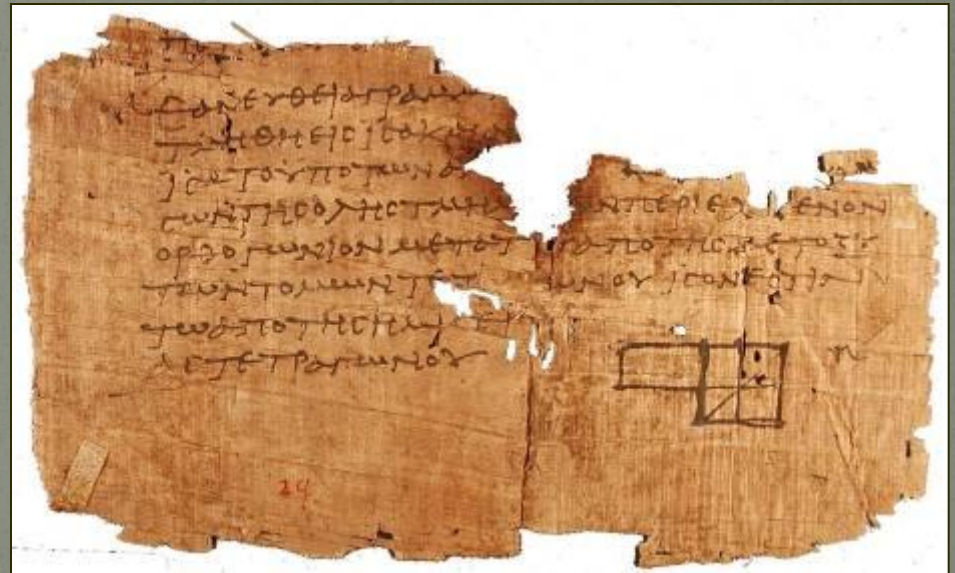 ΕΑΝΕΥΘΕΙΑΓΡΑΜΜ
ΤΜΗΘΗΕΙϹΙϹΑΚΑΙΑΝ
ΙϹΑΤΟΥΠΟΤΩΝΑΝ
ϹΩΝΤΗϹΟΛΗϹΤΜΗΜ ΩΝΠΕΡΙΕΧΟΜΕΝΟΝ
ΟΡΘΟΓΩΝΙΟΝΜΕΤΑΤ ΥΑΠΟΤΗϹΜΕΤΟΞΥ
ΤΩΝΤΟΜΩΝΤΕΤ ΓΩΝΟΥΙϹΟΝΕϹΤΙΝ
ΤΩΑΠΟΤΗϹΗΜΙϹΕΙ
ΑϹΤΕΤΡΑΓΩΝΟΥ